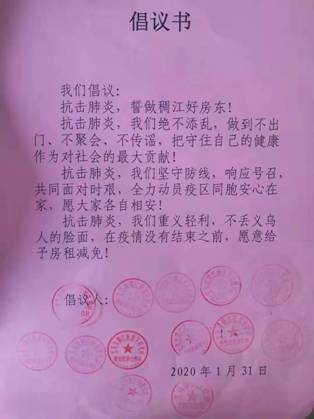 倡议书
我们倡议:
抗击肺炎,誓做稠江好房东!
抗击肺炎,我们绝不添乱,做到不出
门、不聚会、不传谣,把守住自己的健康
作为对社会的最大贡献!
抗击肺炎,我们坚守防线,响应号召,
共同面对时艰,全力动员疫区同胞安心在
家,愿大家各自相安!
抗击肺炎,我们重义轻利,不丢义乌
人的脸面,在疫情没有结束之前,愿意给
予房租减免!
倡议人:
2020年1月31日